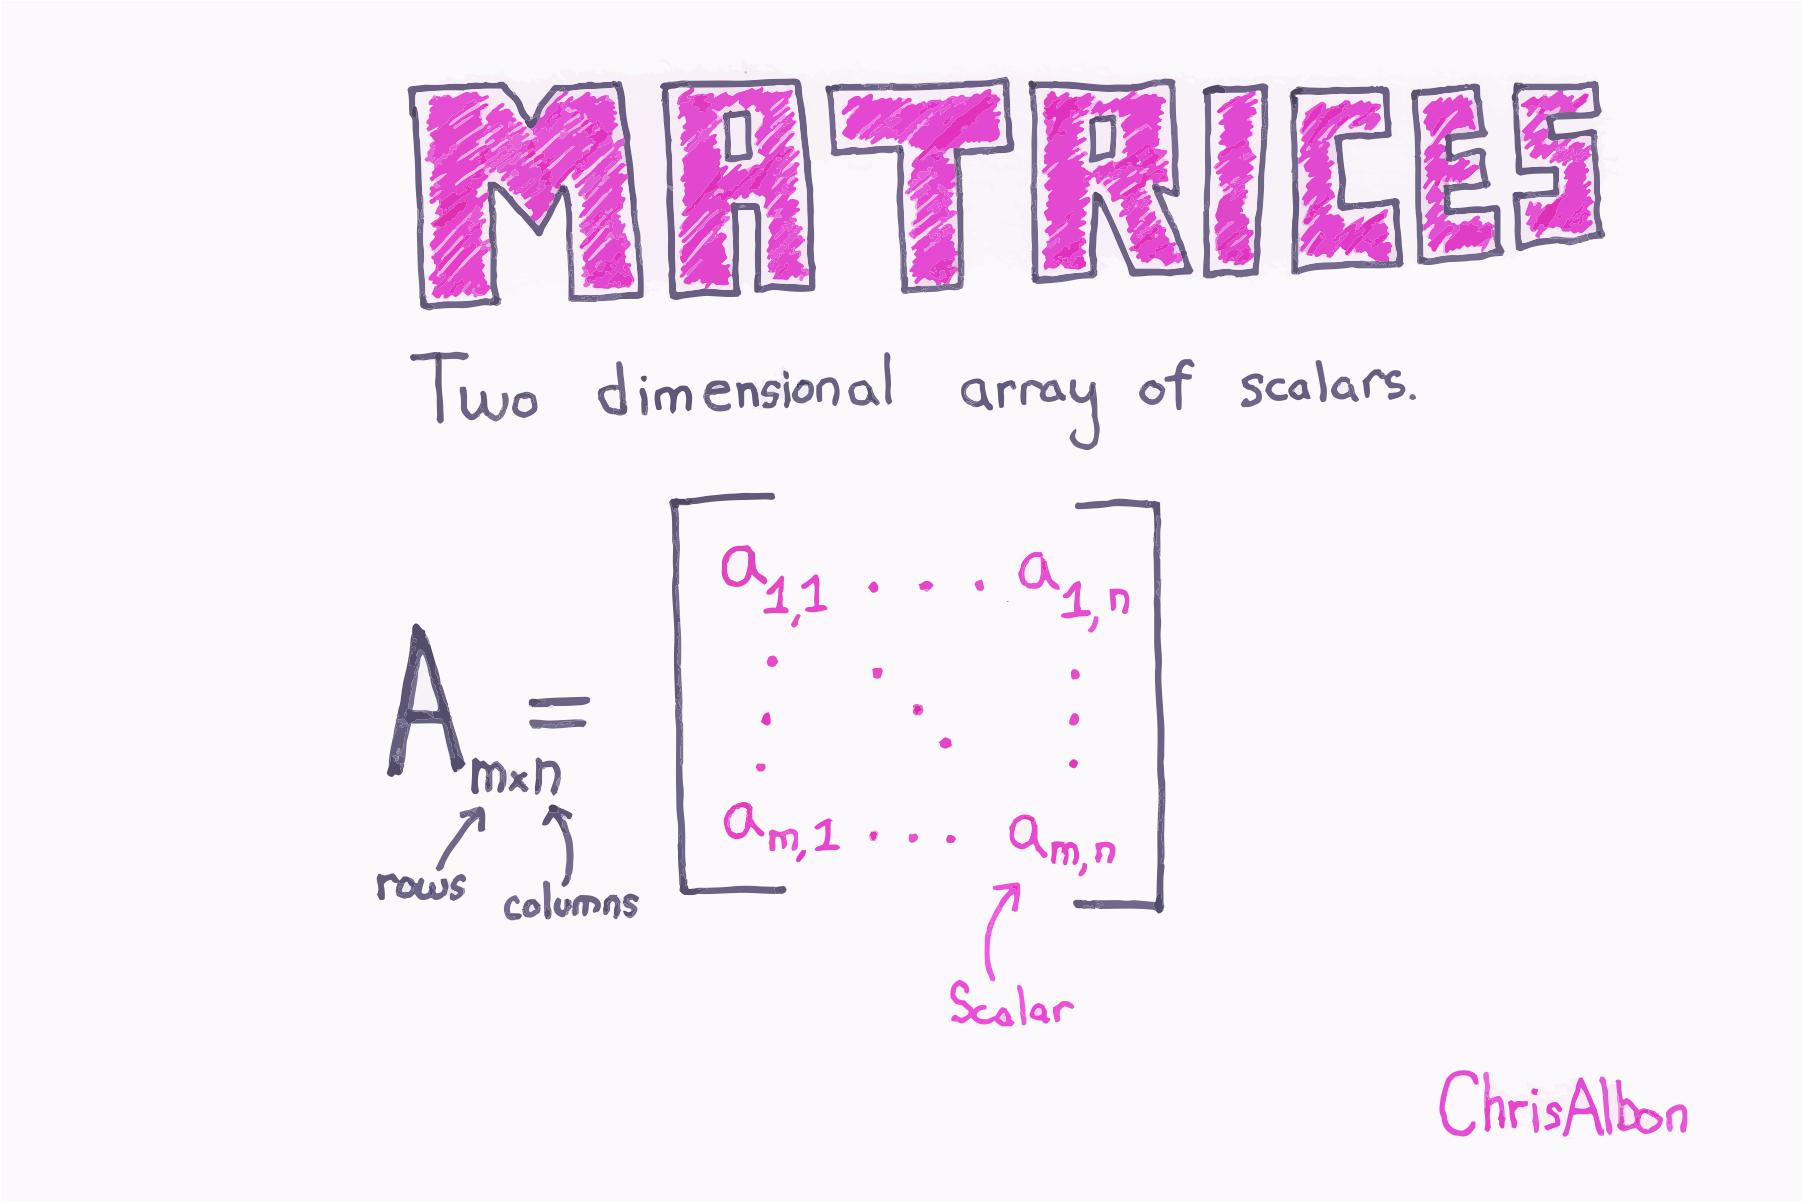 MATRICES
Two dimensional array of scalars.
a1,1 . . . a1,n
A m×n =
am,1 . . . am,n
rows
columns
Scalar
ChrisAlbon